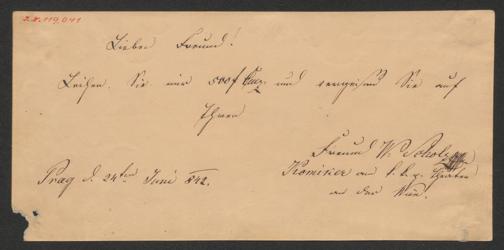 I.N. 119.041
Lieber Freund!
Leihen Sie mir 500 f Cmz. und vergeßen Sie auf
Ihren
Freund W. Scholz
Komiker am k. k. p. Theater
an der Wien.
Prag d. 24ten Juni 842.